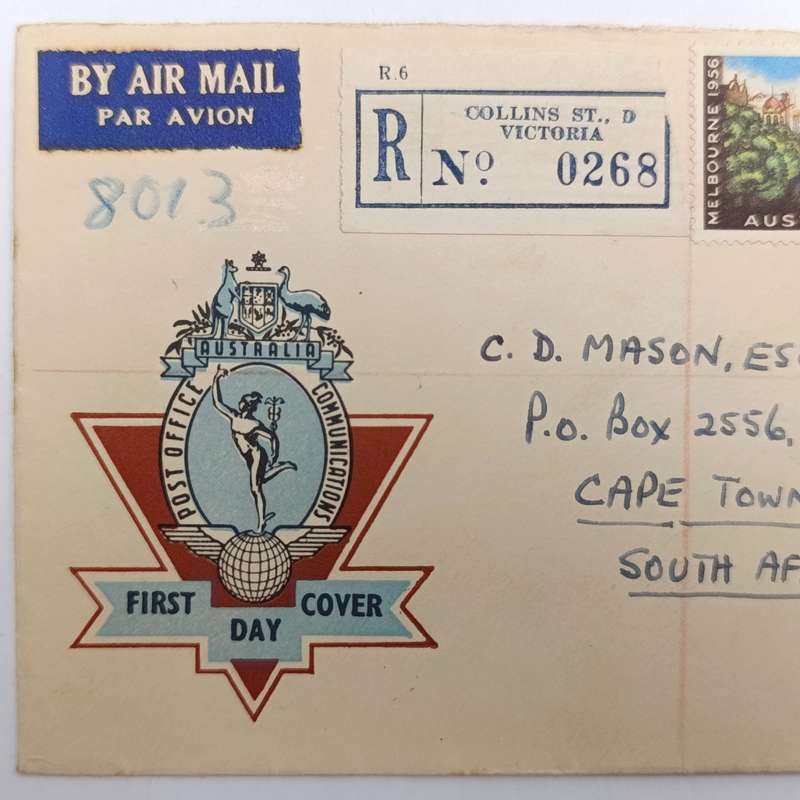 BY AIR MAIL
PAR AVION
R.6
R
COLLINS ST., D
VICTORIA
No. 0268
MELBOURNE 1956
AUS
8013
AUSTRALIA
POST OFFICE
COMMUNICATIONS
FIRST DAY COVER
C. D. MASON, ES
P.O. BOX 2556,
CAPE TOWN
SOUTH AF